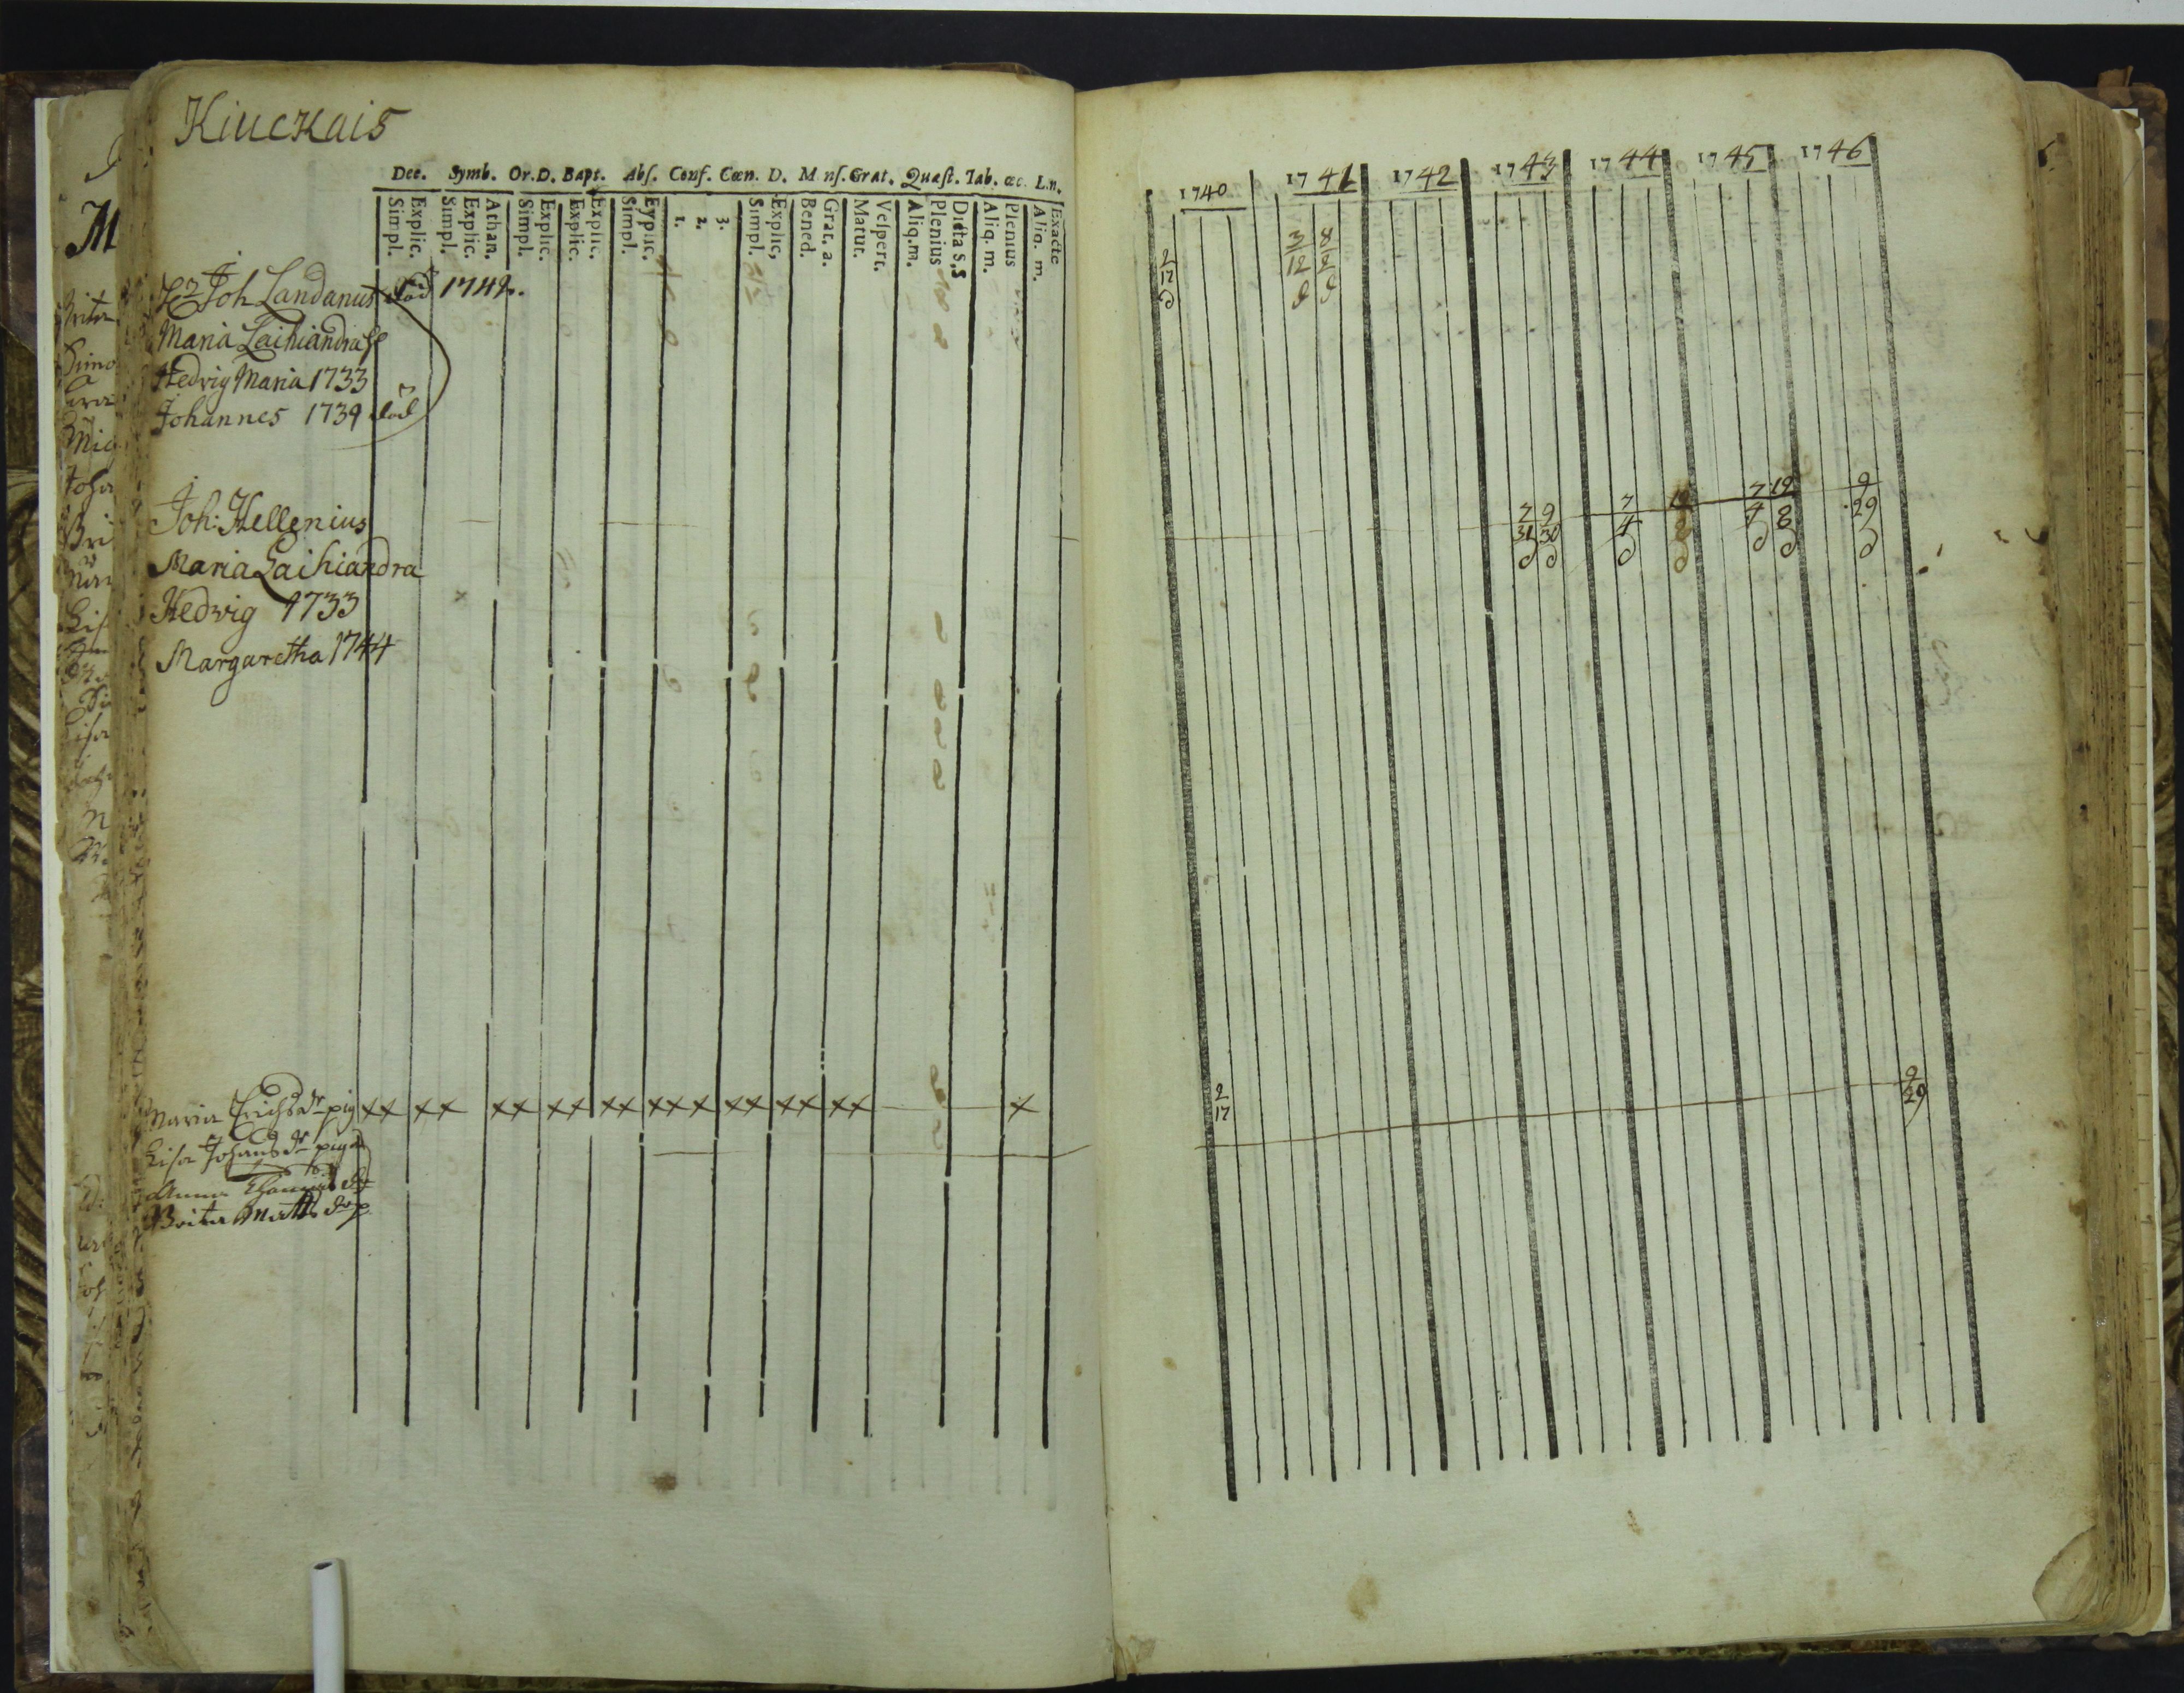 Kiuckais
Dec. Symb. Or.D. Bapt. Abs. Conf. Cœn. D. M ns. Grat. Quæst. Tab. œc. L.n.
Simpl. Explic. Simpl. Explic. Athan. Simpl. Explic. Explic. Explic. Simpl. Explic. 1. 2. 3. Simpl. Explic, Bened. Grat. a. Matut. Vespert. Aliq.m. Plenius Dicta S.S Aliq. m. Plenius Aliq. m. Exacte
Joh Landanus död 1742.
Maria Laihiandra
Hedvig Maria 1733
Johannes 1739 död
Joh: Hellenius
Maria Laihiandra
Hedwig 1733
Margaretha 1744
Maria Erichsdr pig xx xx xx xx xx xxx xx xx xx x
Lisa Johansdr piga
Anna
Brita Matts dr p
1740 1741 1742 1743 1744 1745 1746
2 3 8
17 12 2
7 9 7 12 7 12 9
31 30 4 8 4 8 29
2 9
17 29